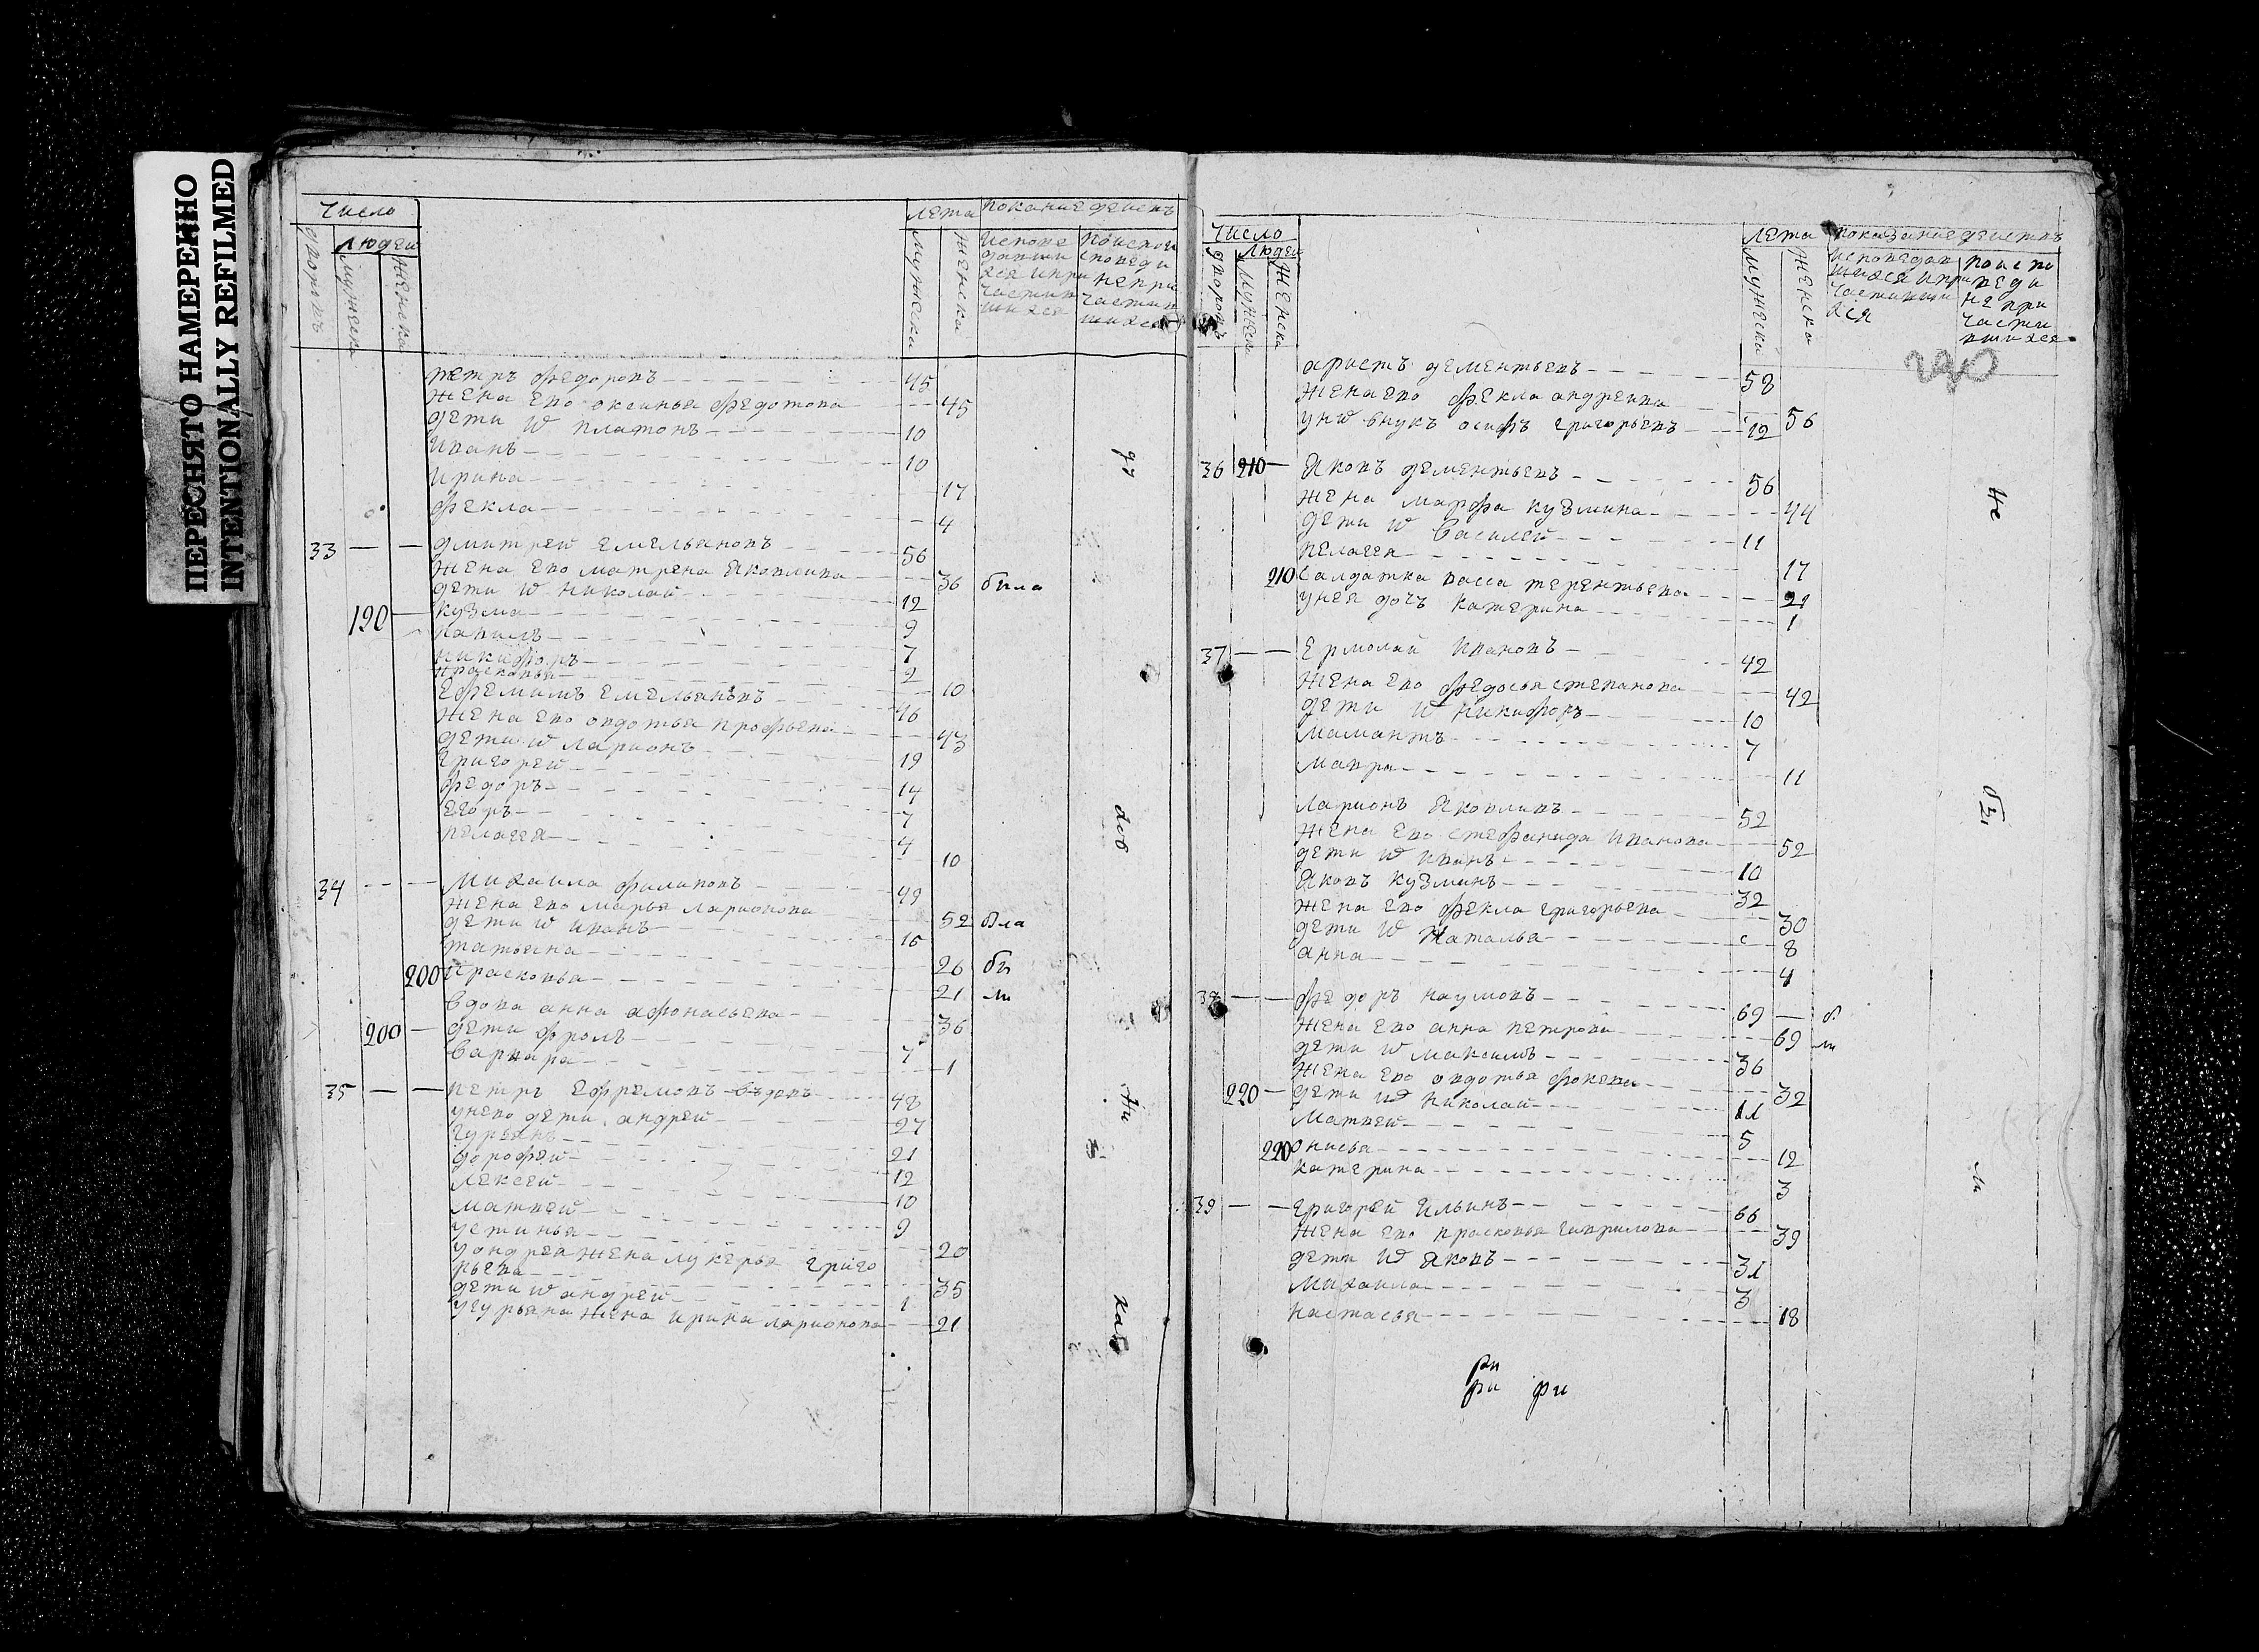 ПЕРЕСНЯТО НАМЕРЕННО
INTENTIONALLY REFILMED
Число
людей
дворовъ
мужеска
женска
лета
мужеска
женска
показание действ
исповедавшися и причастившися
петръ федоровъ 45
жена ево оксинья федотова 45
дети ѿ платонъ 10
иванъ 10
ирина 17
фекла 4
33 дмитрей емельяновъ 56
жена ево матрена яковлива 36 была
дети ѿ николай 12
190 кузма 9
7
никифоръ 2
прасковья 10
ефремимъ емельяновъ 46
жена ево овдотья профьева 43
дети ѿ ларионъ 19
григорей 14
федоръ 7
егоръ 4
пелагея 10
34 михаила филиповъ 49
жена ево марья ларионова 52 бла
дети ѿ иванъ 16
татьяна 26 бы
200 прасковья 21 ли
вдова анна афонасьева 36
200 дети фролъ 7
варвара 1
35 петръ ефремовъ вдовъ 48
у нево дети андрей 27
гурьянъ 21
дорофей 12
лексей 10
матвей 9
устинья 20
у андрея жена лукерья григо
рьева 35
дети ѿ андрей 1
у гурьяна жена ирина ларионова 21
Число
людей
дворовъ
мужеска
женска
лета
мужеска
женска
показание действъ
по испо
веди
не при
части
вшияся
230
аристъ дементьевъ 58
жена ево фекла андреива 56
у них внукъ осифъ григорьевъ 12
36 210 яковъ дементьевъ 56
жена марфа кузмина 44
дети ѿ василей 11
пелагея 17
210 салдатка васса терентьева 21
у нея дочъ катерина 1
37 ермолай ивановъ 42
жена ево федосья степанова 42
дети ѿ никифоръ 10
мамантъ 7
мавра 11
ларионъ яковливъ 52
жена ево стефанида иванова 52
дети ѿ иванъ 10
яковъ кузминъ 32
жена ево фекла григорьева 30
дети ѿ наталья 8
анна 4
38 федоръ наумовъ 69 б
жена ево анна петрова 69 ли
дети ѿ максимъ 36
жена ево овдотья фокеева 32
220 дети ѿ николай 11
матвей 5
220 онисья 12
катерина 3
39 григорей ильинъ 66
жена ево прасковья гаврилова 39
дети ѿ яковъ 31
михаила 3
настасья 18
ри
ри фи